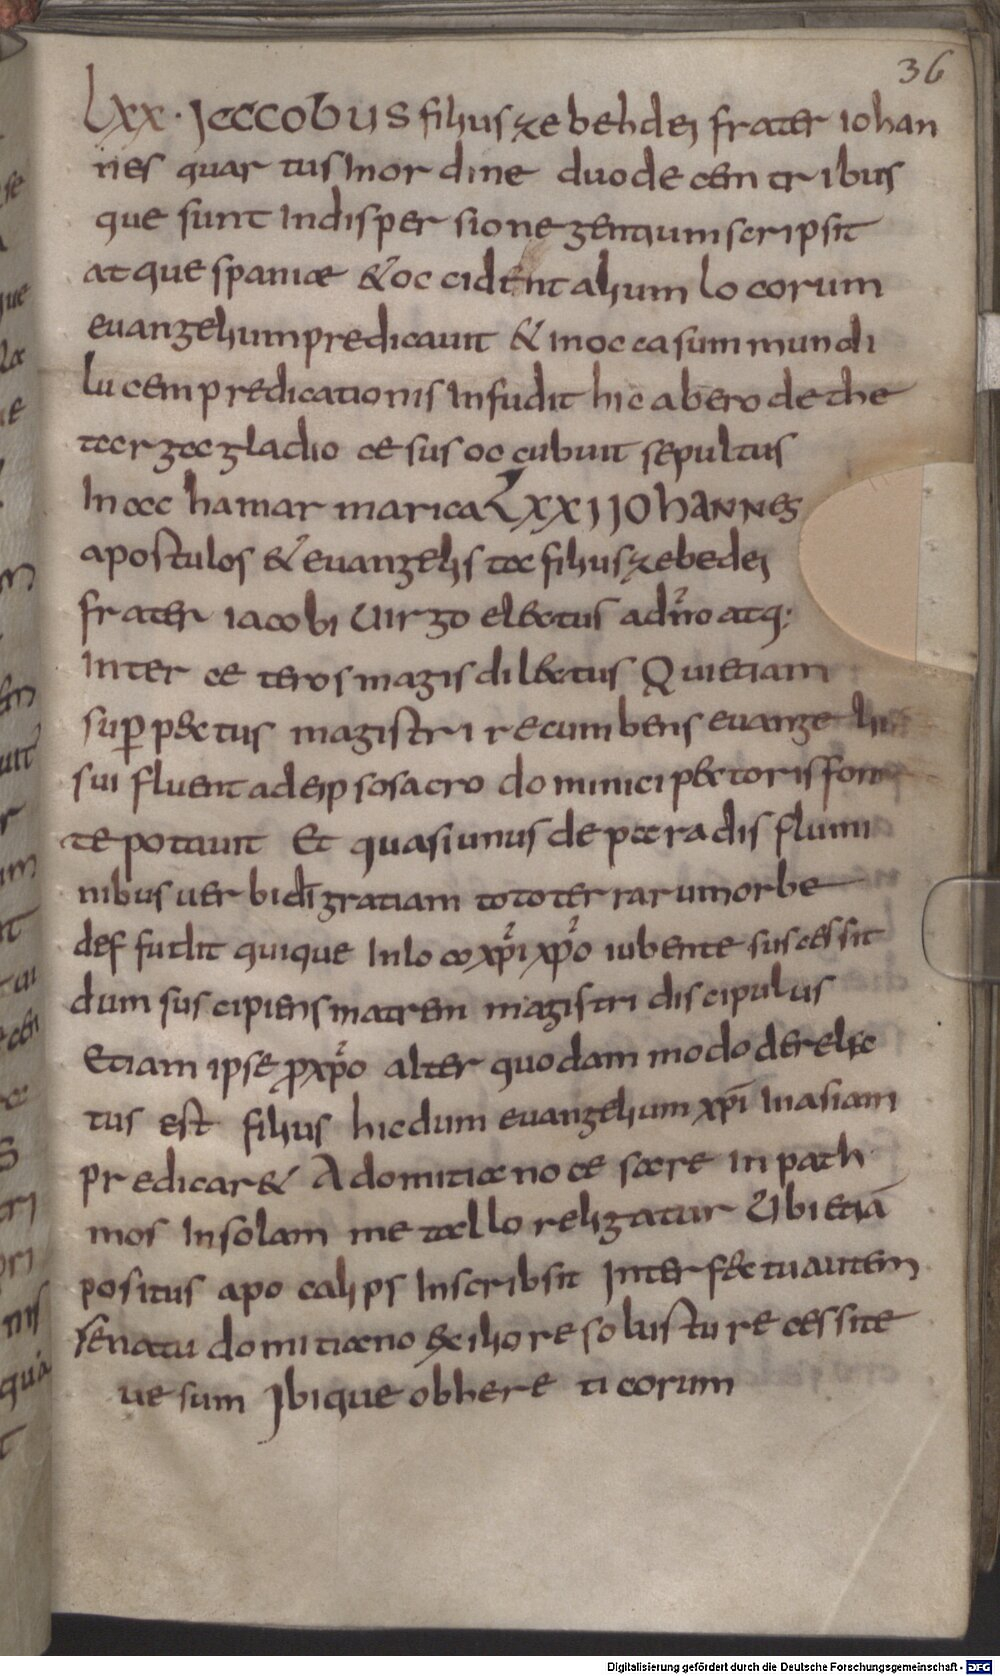 36
Lxx. Jaccobus filius zebehdei frater iohan
nes quartus in ordine duodecem tribus
que sunt in dispersione gentium scripsit
atque spaniæ & occidentalium locorum
euangelium predicauit & in occasum mundi
lucem predicationis infudit hic ab erode the
tarza gladio cesus occubuit sepultus
In ac hamar marica Lxxi Johannes
apostulos & euangelista filius zebedei
frater iacobi Uirgo electus a dño atq:
inter ceteros magis dilectus Qui etiam
sup pectus magistri recumbens euangelii
sui fluenta de ipso sacro dominici pectoris fon
te potauit Et quasi unus de paradis flumi
nibus uerbi dī gratiam toto terrarum orbe
deffudit quique in loco xpi xpo iubente suscessit
dum suscipiens matrem magistri discipulus
Etiam ipse p xpo alter quodam modo derelic
tus est filius hic dum euangelium xpī in asiam
predicar& A domitiano cesare in path
mos insolam metallo religatur Ubi etiā
positus apocalips inscribsit interfectu autem
senatu domitiano exilio resolustu recessit e
uesum Jbique ob hereticorum
Digitalisierung gefördert durch die Deutsche Forschungsgemeinschaft - DFG